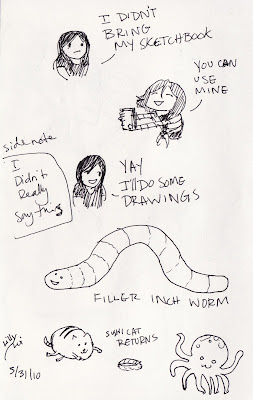 I DIDN'T
BRING
MY SKETCHBOOK
YOU CAN
USE
MINE
side note
I
Didn't
Really
Say this
YAY
I'll DO SOME
DRAWINGS
FILLER INCH WORM
SUSHI CAT
RETURNS
5/31/10